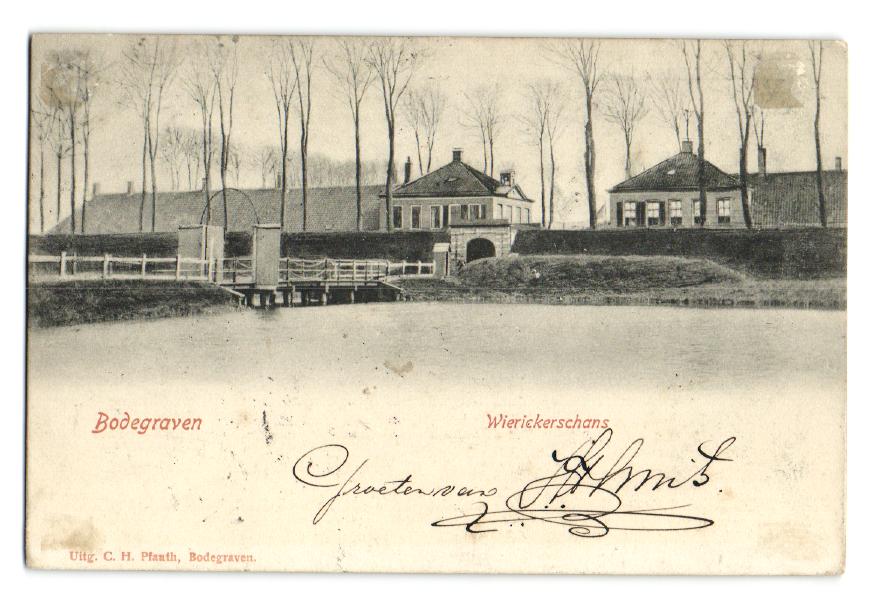 Bodegraven Wierickerschans
Groeten van
Uitg. C. H. Pfauth, Bodegraven.